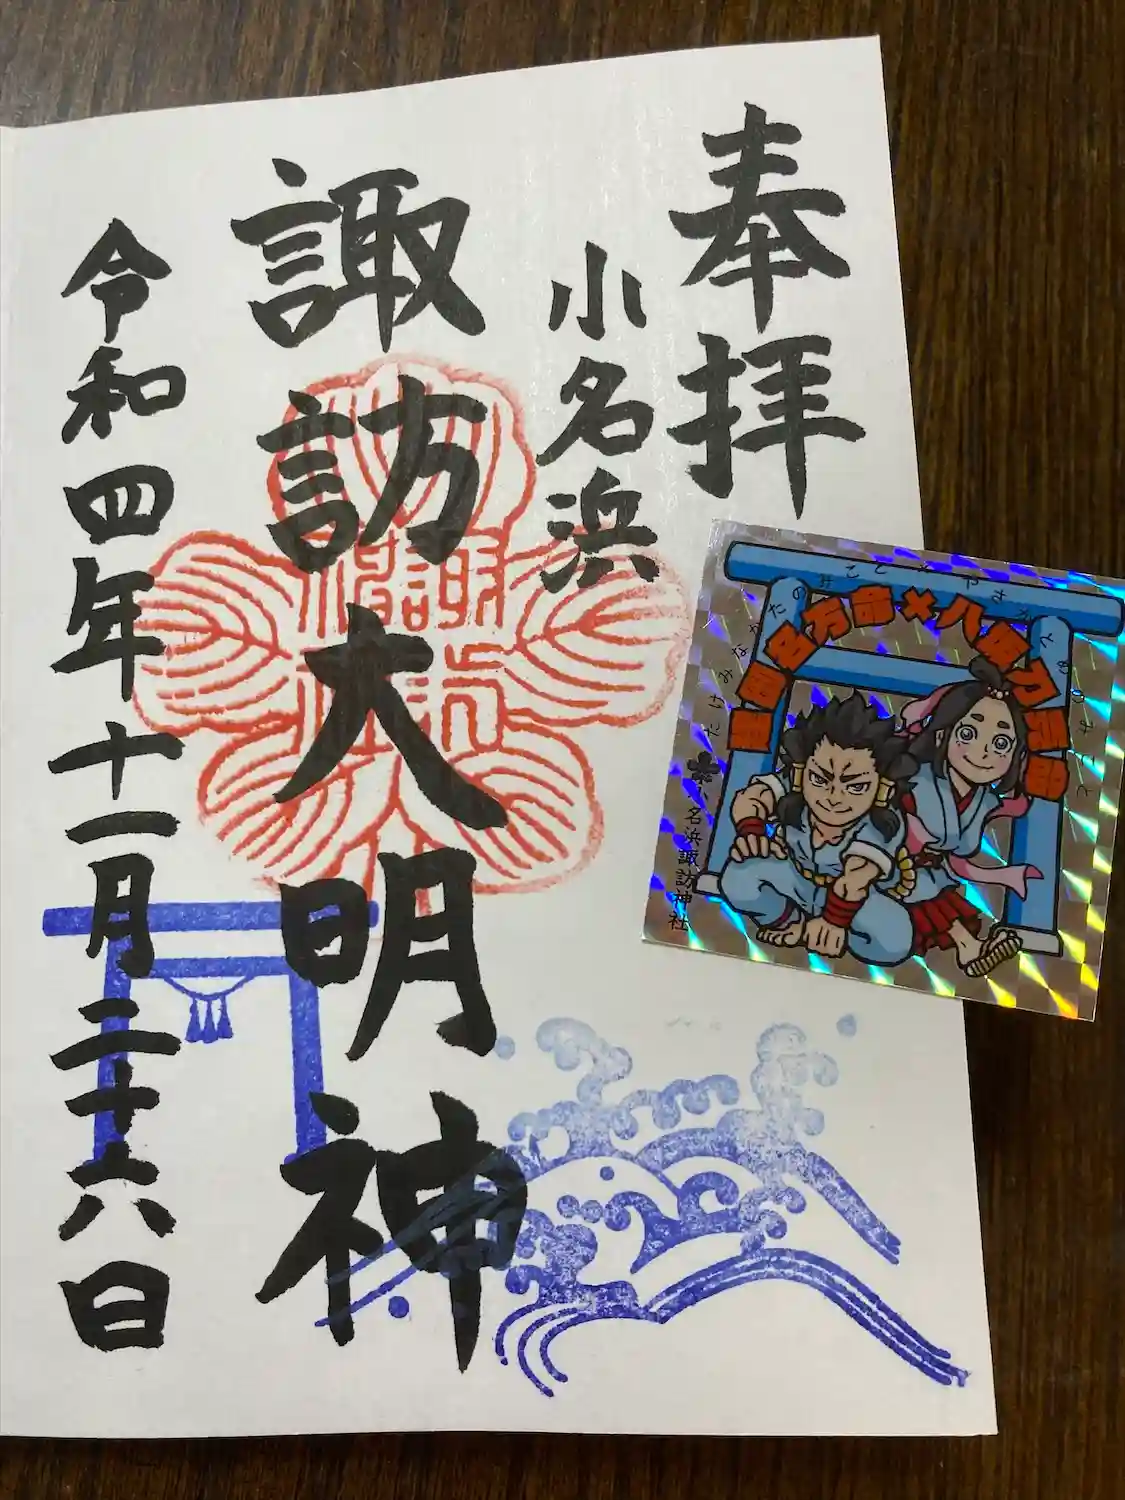 奉拝
小名浜
諏訪大明神
令和四年十一月二十六日
建御名方命×八坂刀売命
たけみなかたのみこと
やさかとめのみこと
小名浜諏訪神社